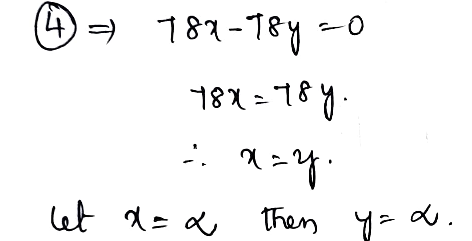 ④ ⇒ 78x - 78y = 0
78x = 78y.
∴ x = y.
Let x = α then y = α.